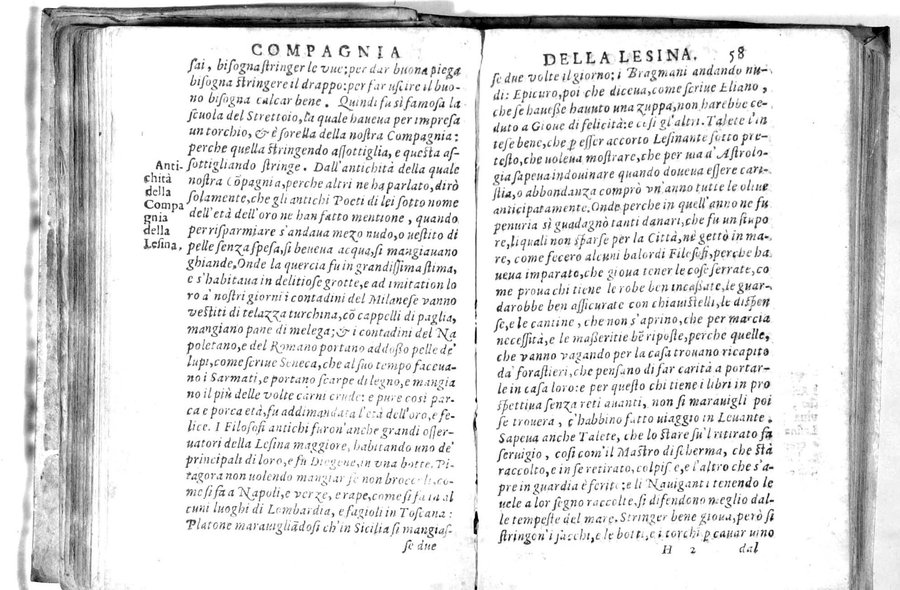 COMPAGNIA
sai, bisogna stringer le vue: per dar buona piega
bisogna stringere il drappo: per far uscire il buo-
no bisogna calcar bene. Quindi fu sì famosa la
scuola del Strettoio, la quale haueua per impresa
vn torchio, & è sorella della nostra Compagnia:
perche quella stringendo assottiglia, e questa as-
sottigliando stringe. Dall'antichità della quale
nostra cõpagnia, perche altri ne ha parlato, dirò
solamente, che gli antichi Poeti di lei sotto nome
dell'età dell'oro ne han fatto mentione, quando
per risparmiare s'andaua mezo nudo, o uestito di
pelle senza spesa, si beueua acqua, si mangiauano
ghiande. Onde la quercia fu in grandissima stima,
e s'habitaua in delitiose grotte, e ad imitation lo
ro a' nostri giorni i contadini del Milanese vanno
vestiti di telazza turchina, cõ cappelli di paglia,
mangiano pane di melega; & i contadini del Na
poletano, e del Romano portano addosso pelle de'
lupi, come scriue Seneca, che al suo tempo faceua-
no i Sarmati, e portano scarpe di legno, e mangia
no il più delle volte carni crude: e pure così par-
ca e porca età, fu addimandata l'età dell'oro, e fe-
lice. I Filosofi antichi furon'anche grandi osser-
uatori della Lesina maggiore, habitando uno de'
principali di loro, e fu Diogene, in vna botte. Pi-
tagora non uolendo mangiar se non broccoli, co-
me si fa a Napoli, e verze, e rape, come si fa in al
cuni luoghi di Lombardia, e fagioli in Toscana:
Platone marauigliãdosi ch'in Sicilia si mangias-
se due
Anti-
chità
della
Compa
gnia
della
Lesina.
DELLA LESINA. 58
se due volte il giorno; i Bragmani andando nu-
di: Epicuro, poi che diceua, come scriue Eliano,
che se hauesse hauuto una zuppa, non harebbe ce-
duto a Gioue di felicità: e così gl'altri. Talete l'in
tese bene, che p esser accorto Lesinante sotto pre-
testo, che uoleua mostrare, che per uia d'Astrolo-
gia sapeua indouinare quando doueua essere care
stia, o abbondanza comprò vn'anno tutte le oliue
anticipatamente. Onde perche in quell'anno ne fu
penuria sì guadagnò tanti danari, che fu un stupo
re, li quali non sparse per la Città, nè gettò in ma-
re, come fecero alcuni balordi Filosofi, perche ha
ueua imparato, che gioua tener le cose serrate, co
me proua chi tiene le robe ben incassate, le guar-
darobbe ben assicurate con chiauistelli, le dispen
se, e le cantine, che non s'aprino, che per marcia
necessità, e le masseritie bẽ riposte, perche quelle,
che vanno vagando per la casa trouano ricapito
da' forastieri, che pensano di far carità a portar-
le in casa loro: e per questo chi tiene i libri in pro
spettiua senza reti auanti, non si marauigli poi
se trouera, c'habbino fatto uiaggio in Leuante.
Sapeua anche Talete, che lo stare su'l ritirato fa
seruigio, così com'il Mastro di scherma, che stà
raccolto, e in se retirato, colpisce, e l'altro che s'a-
pre in guardia è ferito: e li Nauiganti tenendo le
uele a lor segno raccolte, si difendono meglio dal-
le tempeste del mare. Stringer bene gioua, però si
stringon'i sacchi, e le botti, e i torchi p cauar uino
H 2 dal